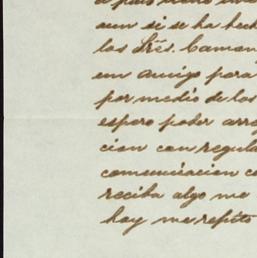 aun si se ha hech
los Srēs. Camon
un amigo para
por medio de los
espero poder arre
cion con regula
comunicacion co
reciba algo me
hoy me repito